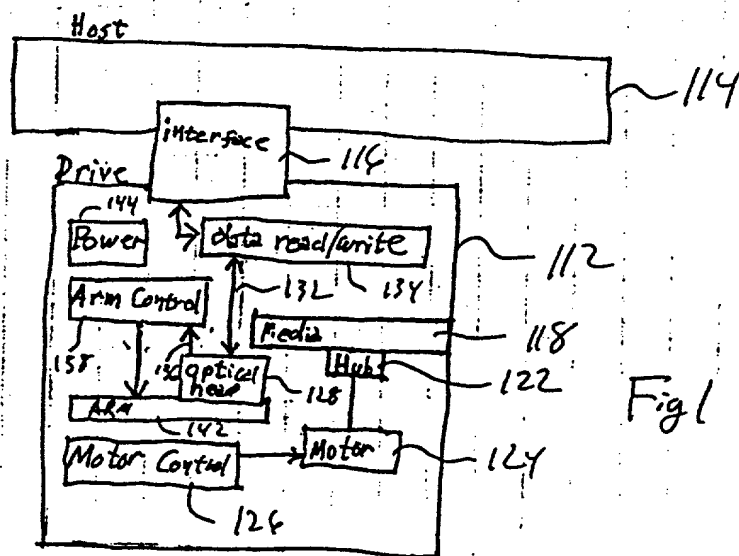 Host
114
interface
116
Drive
144
Power
data read/write
134
112
132
Arm Control
138
Media
118
136
optical head
128
Hub
122
ARM
142
Motor Control
126
Motor
124
Fig 1